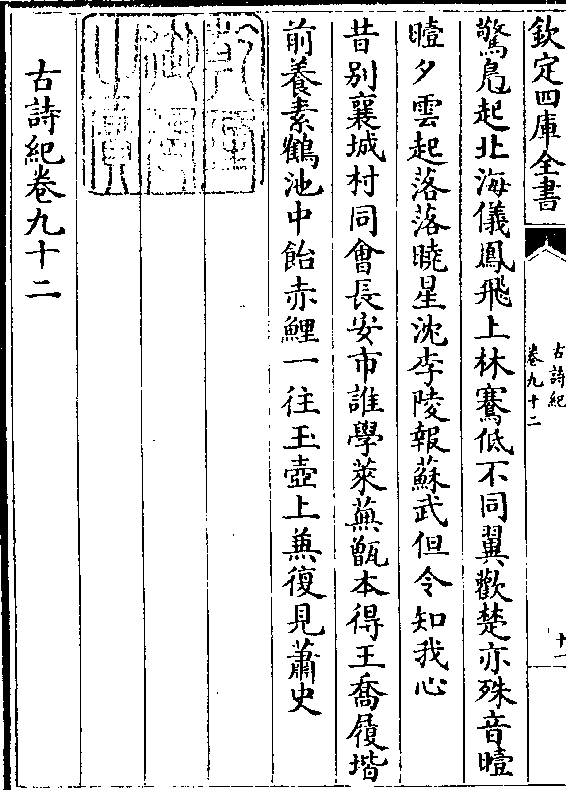 欽定四庫全書
古詩紀
卷九十二
十二
驚鳧起北海儀鳳飛上林騫低不同翼歡楚亦殊音曀
曀夕雲起落落曉星沈李陵報蘇武但令知我心
昔别襄城村同會長安市誰學萊蕪甑本得王喬履堦
前養素鶴池中飴赤鯉一往玉壺上兼復見蕭史
古詩紀卷九十二